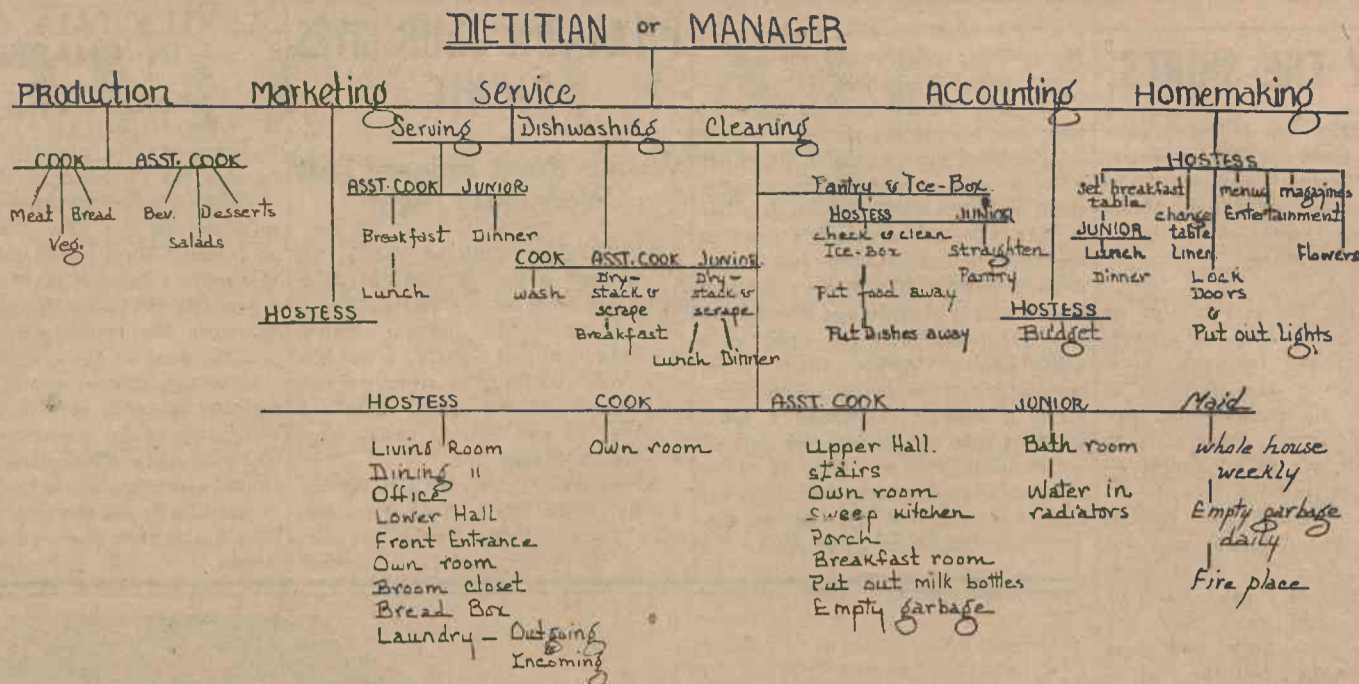 DIETITIAN or MANAGER
PRODUCTION Marketing Service ACCOUNTING Homemaking
Serving Dishwashing Cleaning
COOK ASST. COOK
Meat Veg. Bread
Bev. Salads Desserts
HOSTESS
ASST. COOK JUNIOR
Breakfast Dinner
Lunch
COOK ASST. COOK JUNIOR
wash
Dry-
stack &
scrape
Breakfast
Dry-
stack &
scrape
Lunch Dinner
Pantry & Ice-Box
HOSTESS JUNIOR
check & clean
Ice-Box
Put food away
Put Dishes away
Straighten
Pantry
HOSTESS
Budget
HOSTESS
Set breakfast
table
JUNIOR
Lunch
Dinner
change
table
Linen
Lock
Doors
&
Put out lights
menus
Entertainment
magazines
Flowers
HOSTESS COOK ASST. COOK JUNIOR Maid
Living Room
Dining "
Office
Lower Hall
Front Entrance
Own room
Broom closet
Bread Box
Laundry - Outgoing
Incoming
Own room
Upper Hall.
stairs
Own room
Sweep kitchen
Porch
Breakfast room
Put out milk bottles
Empty garbage
Bath room
Water in
radiators
whole house
weekly
Empty garbage
daily
Fire place